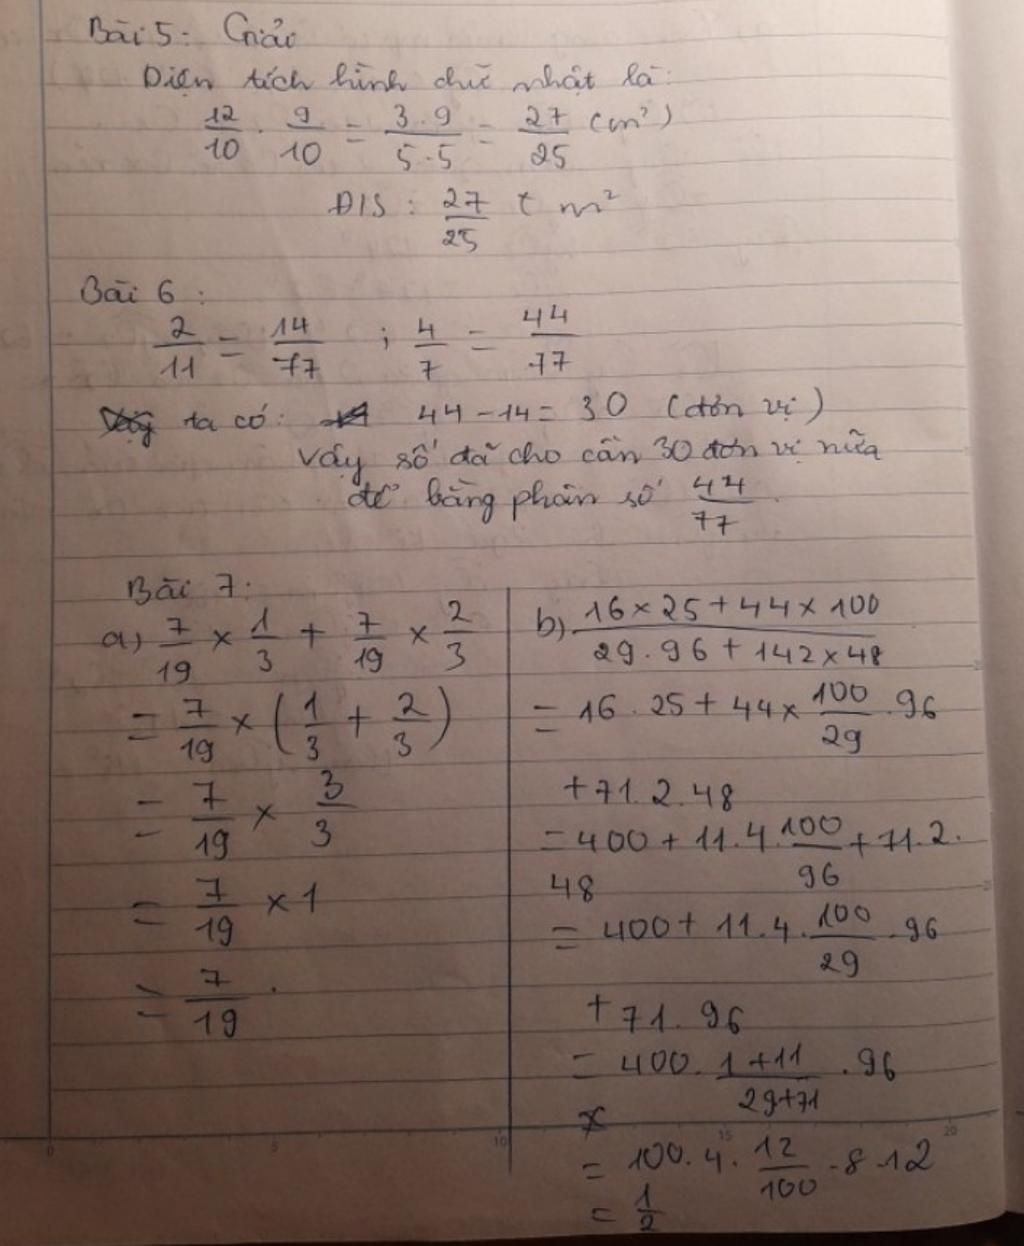 Bài 5: Giải
Diện tích hình chữ nhật là:
12/10 . 9/10 = 3.9/5.5 = 27/25 (m²)
Đ/S : 27/25 m²
Bài 6 :
2/11 = 14/77 ; 4/7 = 44/77
ta có: 44 - 14 = 30 (đơn vị)
Vậy số đã cho cần 30 đơn vị nữa
để bằng phân số 44/77
Bài 7:
a) 7/19 × 1/3 + 7/19 × 2/3
= 7/19 × (1/3 + 2/3)
= 7/19 × 3/3
= 7/19 × 1
= 7/19 .
b) 16 × 25 + 44 × 100/29 . 96 + 142 × 48
= 16 . 25 + 44 × 100/29 . 96
+ 71. 2. 48
= 400 + 11. 4. 100/96 + 71. 2.
48
= 400 + 11. 4. 100/29 . 96
+ 71. 96
= 400. 1+11/29+71 . 96
= 100. 4. 12/100 . 8 . 12
= 1/2
0 5 10 15 20